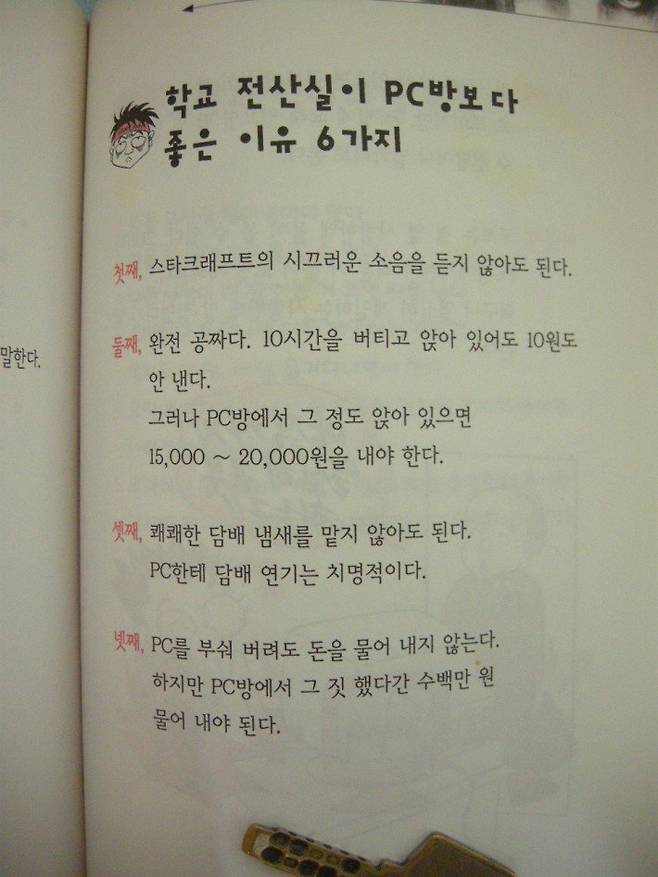 학교 전산실이 PC방보다
좋은 이유 6가지
첫째, 스타크래프트의 시끄러운 소음을 듣지 않아도 된다.
말한다.
둘째, 완전 공짜다. 10시간을 버티고 앉아 있어도 10원도
안 낸다.
그러나 PC방에서 그 정도 앉아 있으면
15,000 ~ 20,000원을 내야 한다.
셋째, 쾌쾌한 담배 냄새를 맡지 않아도 된다.
PC한테 담배 연기는 치명적이다.
넷째, PC를 부숴 버려도 돈을 물어 내지 않는다.
하지만 PC방에서 그 짓 했다간 수백만 원
물어 내야 된다.